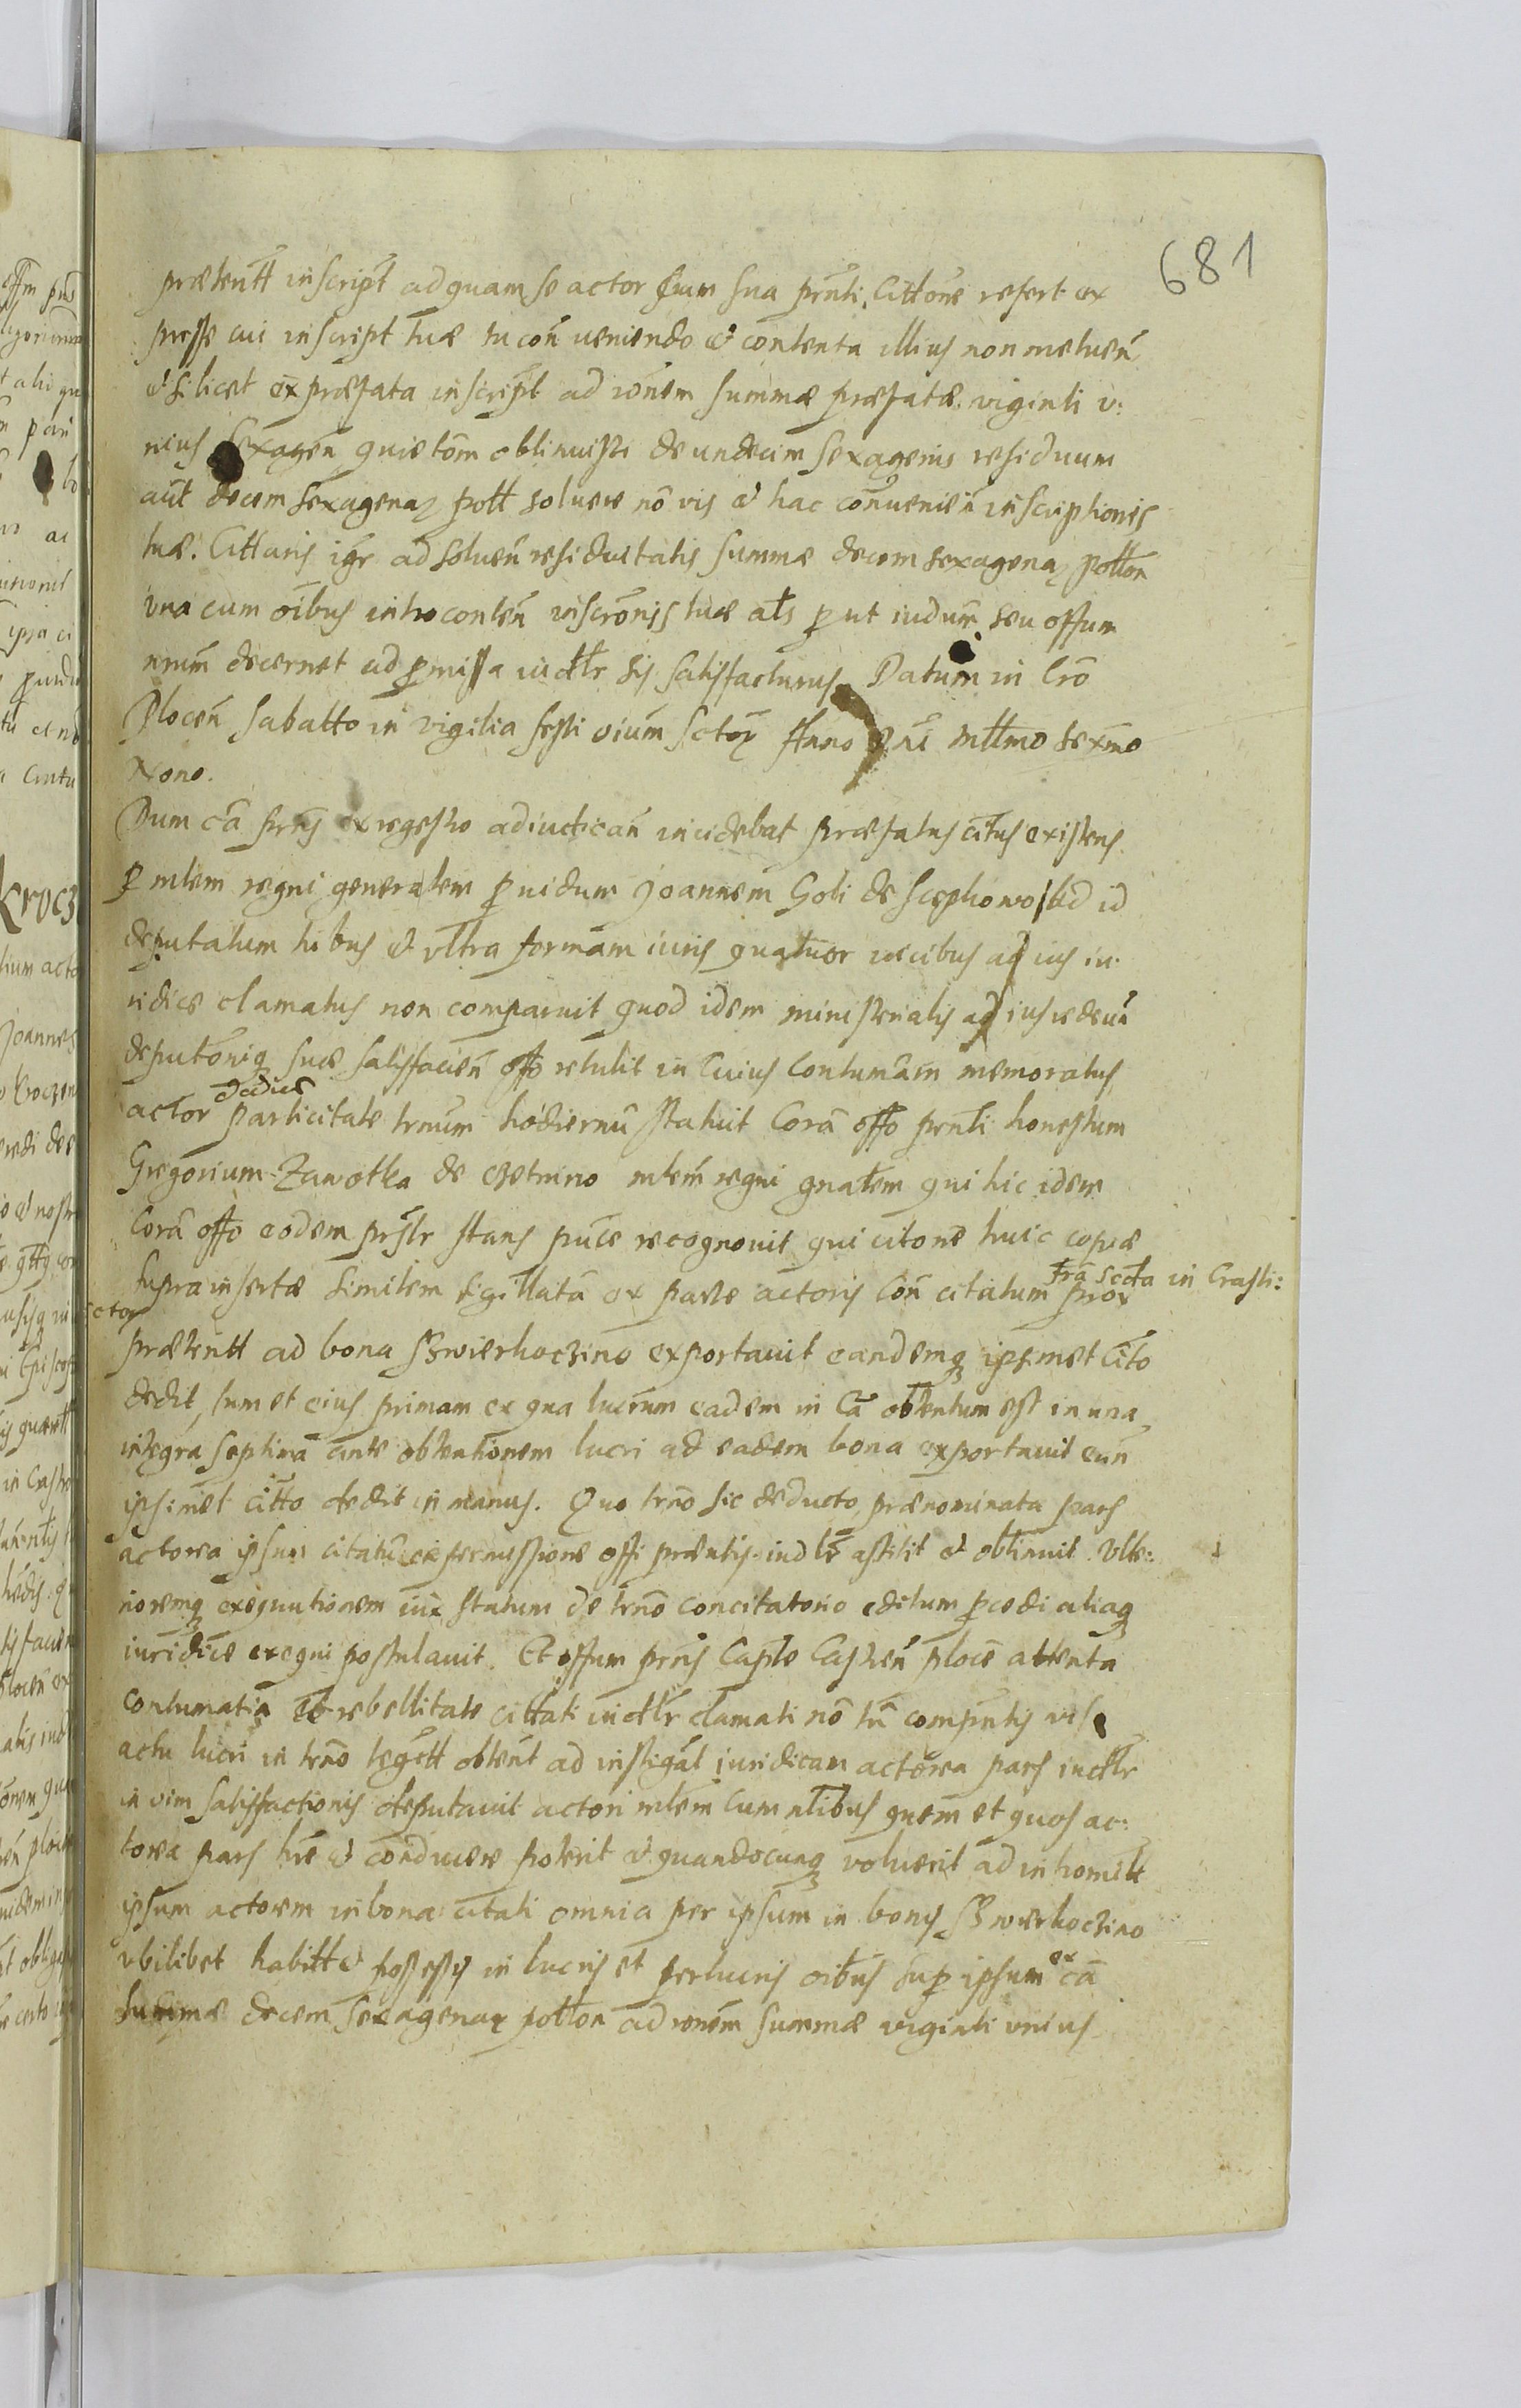 681
prætentt inscript ad quam se actor cum sua pnti Cittone refert ex
presse cui inscript tuæ tu con ueniendo et contenta illius non metuen
et si licet ex præfata inscript ad ronem summæ præfatæ viginti v:
nius sexagen quietom obtinuisti de undecim sexagenis residuum
aut decem sexagenaꝝ poll soluere no vis et hac conuenien inscriptionis
tuæ. Cittaris igr ad soluen residuitatis summæ decem sexagenaꝝ pollon
vna cum oibus intro conten inscronis tuæ als ꝓut iudum seu offum
nrum decernet ad pmissa iudtlr sis satisfacturus. Datum in Cro
Plocen sabatto in vigilia festi oium sctoꝝ Anno Dni Mllmo sexmo
Nono.
Dum ca prns ex regestro adiudican incidebat præfatus citus existens
ꝑ mlem regni generalem ꝓuidum Joannem Goli de ad id
deputatum tribus et vltra formam iuris quatuor vicibus ad ius iu
ridice clamatus non comparuit quod idem ministerialis ad ius redeun
deputoniq suæ satisfacien offo retulit in Cuius Contumam memoratus
actor dedice particitate trnum hodiernu statuit Cora offo pnti honestum
Gregorium Zawotka de mlem regni gnalem qui hic idem
Cora offo eodem prslr stans puce recognouit qui citone huic copiæ
supra insertæ similem sigillata ex parte actoris Con citatum fra scta in Crasti:
sctoꝝ prox
prætentt ad bona Szwierhoczino exportauit eandemq ipsimet Cito
dedit, tum et eius primam ex qua lucrum eadem in Ca obtentum est in una
integra septima ante obtentionem lucri ad eadem bona exportauit ean
ipsimet citto dedit in manus. Quo trno sic deducto, prænominata pars
actorea ipsum citatu ex permissione offi præntis iudlr astitit et obtinuit Vlte:
rioremq exequutionem iux statum de trno concitatorio editum ꝓcedi aliaq
iuridice exequi postulauit. Et offum prns Caple Castren ploce attenta
contumatia et rebellitate cittati iudtlr clamati no tn compntis viso
actu lucri in trno obtent ad instigat iuridicam actorea pars iudtlr
in vim satisfactionis deputauit actori mlem Cum nlibus quem et quos ac:
torea pars hre et conducere poterit et quandocunq voluerit ad intromitt
ipsum actorem in bona citati omnia per ipsum in bonis Szwierhoczino
vbilibet habitt et possess in lucris et perlucris oibus sup ipsum ex ca
summæ decem sexagenaꝝ pollon ad ronem summæ viginti vnius